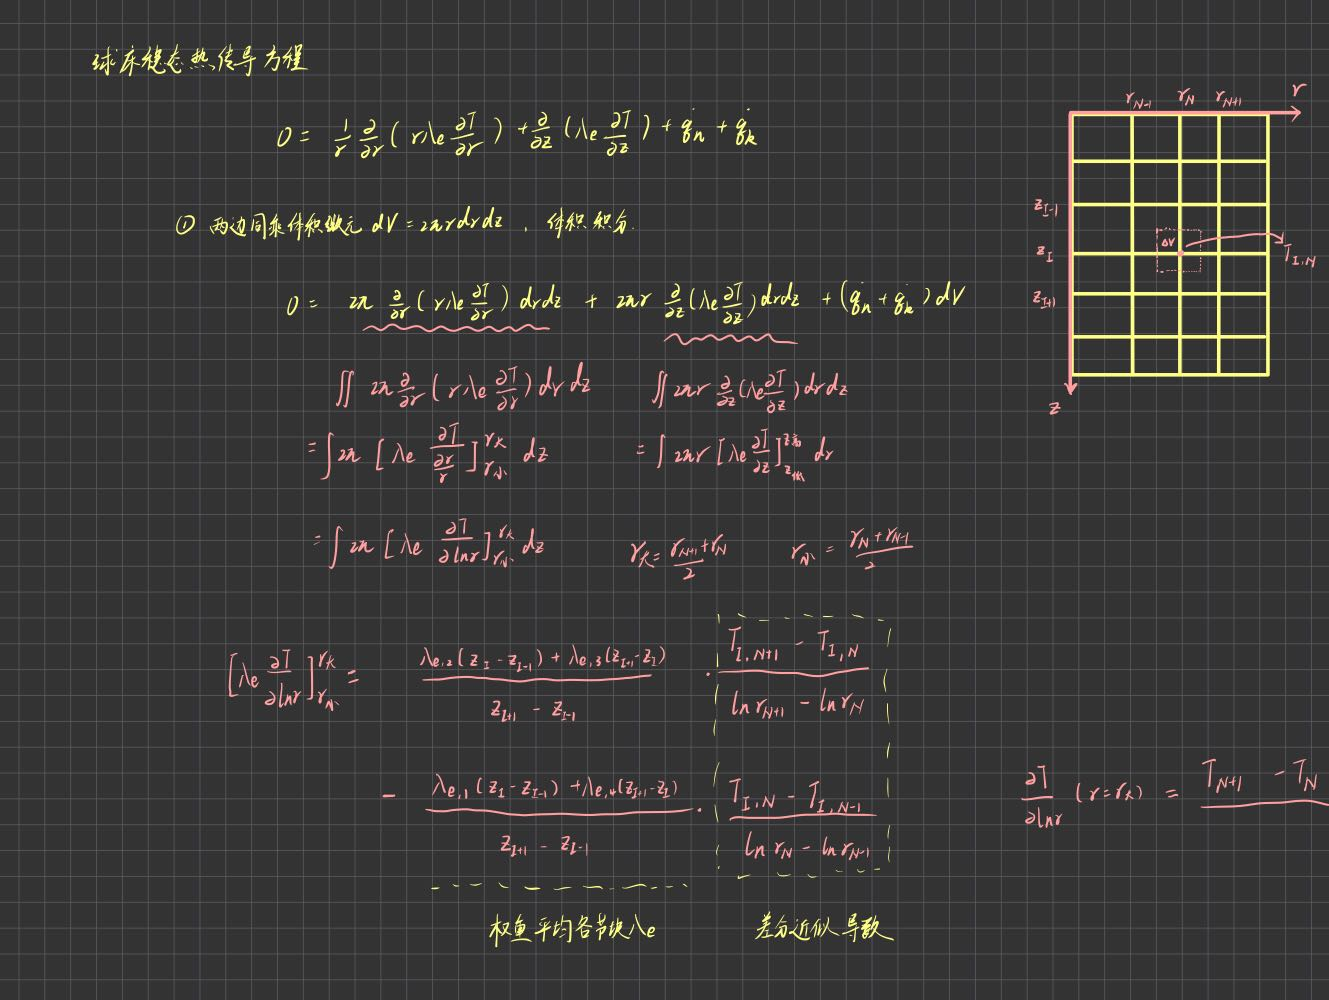 球床稳态热传导方程
0 = 1/r ∂/∂r ( rλe ∂T/∂r ) + ∂/∂z ( λe ∂T/∂z ) + q̇n + q̇k
① 两边同乘体积微元 dV = 2πrdrdz , 体积积分.
0 = 2π ∂/∂r ( rλe ∂T/∂r ) drdz + 2πr ∂/∂z ( λe ∂T/∂z ) drdz + ( q̇n + q̇k ) dV
∬ 2π ∂/∂r ( rλe ∂T/∂r ) dr dz
∬ 2πr ∂/∂z ( λe ∂T/∂z ) drdz
= ∫ 2π [ λe ∂T/(∂r/r) ]r大 r小 dz
= ∫ 2πr [ λe ∂T/∂z ]z高 z低 dr
= ∫ 2π [ λe ∂T/∂lnr ]r大 r小 dz
r大 = (rN+1 + rN)/2
r小 = (rN + rN-1)/2
[ λe ∂T/∂lnr ]r大 r小 = (λe,2 ( zI - zI-1 ) + λe,3 ( zI+1 - zI ))/(zI+1 - zI-1) · (TI,N+1 - TI,N)/(ln rN+1 - ln rN)
- (λe,1 ( zI - zI-1 ) + λe,4 ( zI+1 - zI ))/(zI+1 - zI-1) · (TI,N - TI,N-1)/(ln rN - ln rN-1)
权重平均各节块λe
差分近似导数
rN-1 rN rN+1 r
zI-1
zI
zI+1
z
ΔV
TI,N
∂T/∂lnr ( r = r大 ) = TN+1 - TN